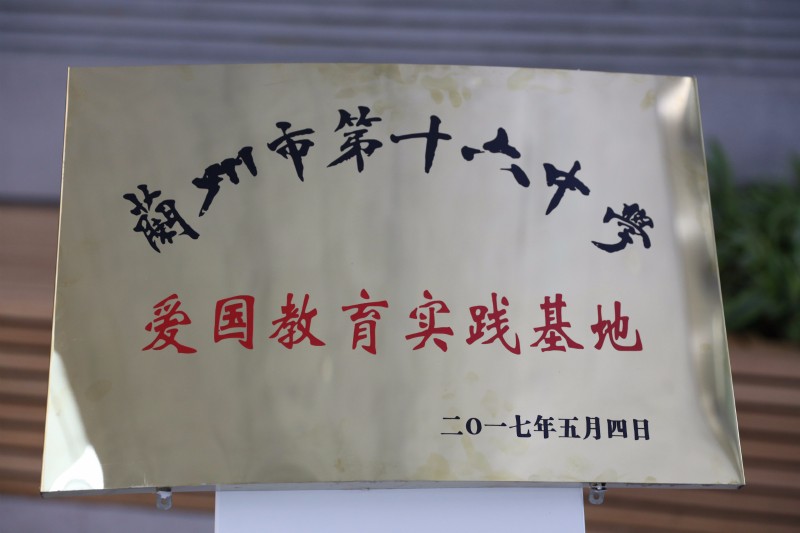 蘭州市第十六中學
爱国教育实践基地
二〇一七年五月四日